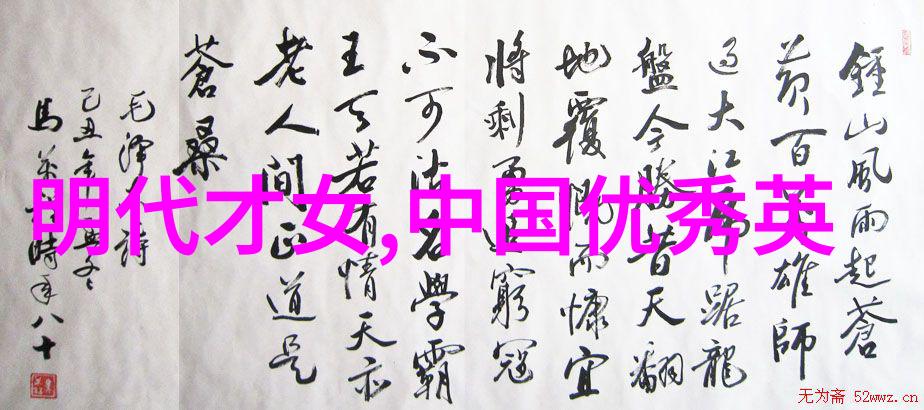 鍾山風雨起蒼
黃百萬雄師
過大江虎踞龍
盤今勝昔天翻
地覆慨而慷宜
將剩勇追窮寇
不可沽名學霸
王天若有情天亦
老人間正道是
蒼桑
毛澤東詩
己丑年
馬 時年八十
明代才女,中国优秀英
无为斋 52wwz.cn